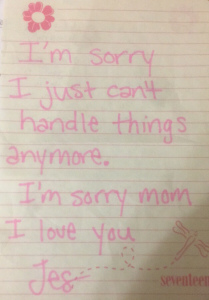 I'm sorry
I just can't
handle things
anymore.
I'm sorry mom
I love you
Jes
seventeen